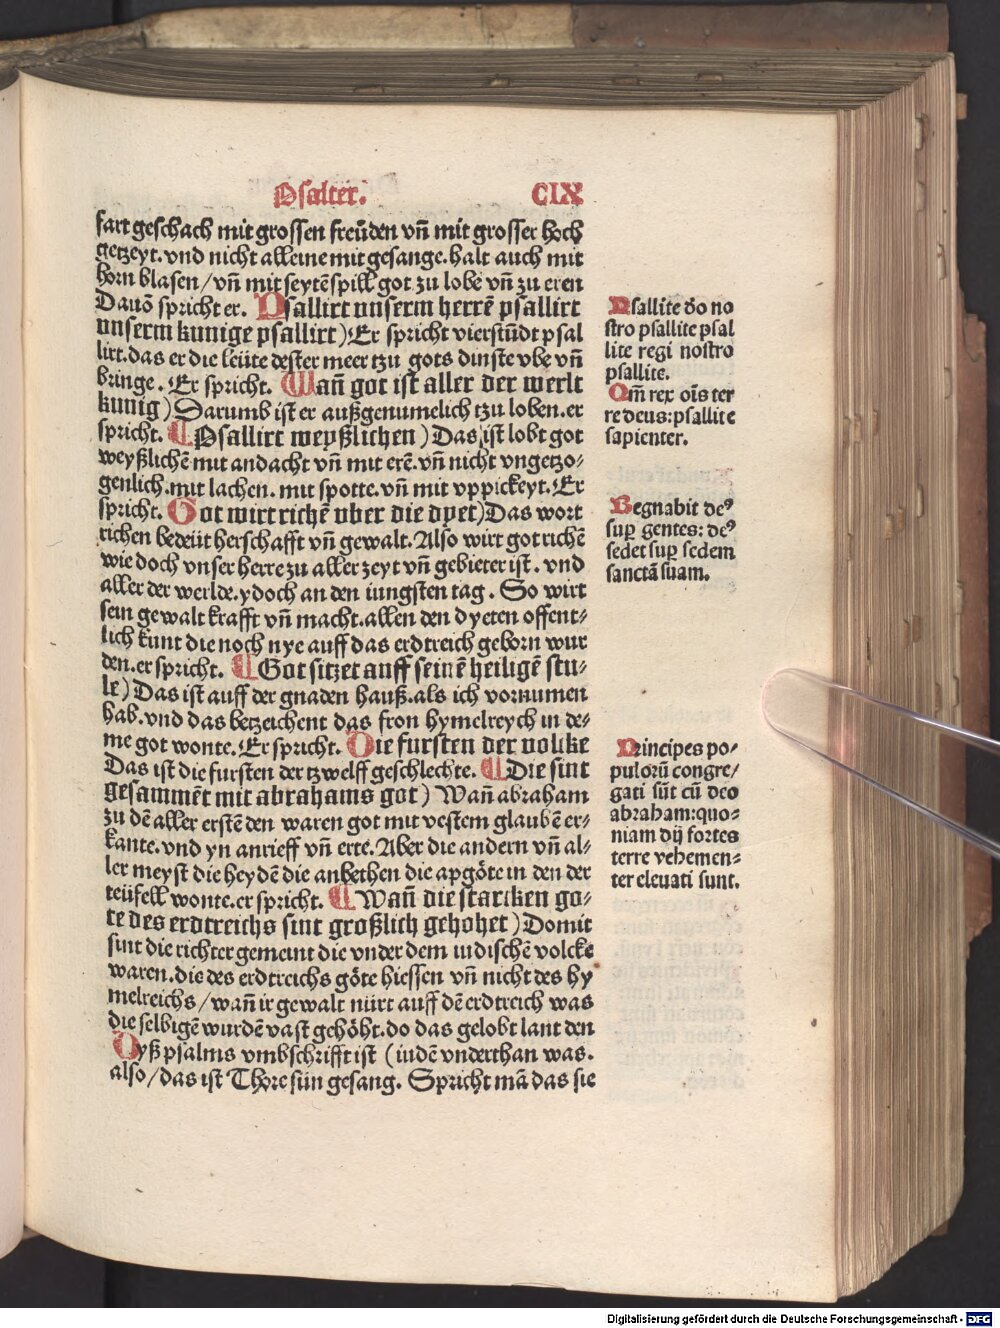 Psalter. CIX
fart geschach mit grossen freüden vn̄ mit grosser hoch
getzeyt. vnd nicht alleine mit gesange. halt auch mit
horn blasen / vn̄ mit seytēspill got zu lobē vn̄ zu eren
Dauō spricht er. Psallirt vnserm herrē psallirt
vnserm kunige psallirt) Er spricht vierstūdt psal
lirt. das er die leüte dester meer tzu gots dinste vbe vn̄
bringe. Er spricht. Wan̄ got ist aller der werlt
kunig) Darumb ist er außgenumelich tzu loben. er
spricht. ¶ Psallirt weyßlichen) Das ist lobt got
weyßlichē mit andacht vn̄ mit erē. vn̄ nicht vngetzo⸗
genlich. mit lachen. mit spotte. vn̄ mit vppickeyt. Er
spricht. Got wirt richē vber die dyet) Das wort
richen bedeüt herschafft vn̄ gewalt. Also wirt got richē
wie doch vnser herre zu aller zeyt vn̄ gebieter ist. vnd
aller der werlde. ydoch an den iungsten tag. So wirt
sein gewalt krafft vn̄ macht. allen den dyeten offent⸗
lich kunt die noch nye auff das erdtreich geborn wur
den. er spricht. ¶ Got sitzet auff seinē heiligē stu⸗
le) Das ist auff der gnaden hauß. als ich vornumen
hab. vnd das betzeichent das fron hymelreych in de⸗
me got wonte. Er spricht. Die fursten der volike
Das ist die fursten der tzwelff geschlechte. ¶ Die sint
gesammēt mit abrahams got) Wan̄ abraham
zu dē aller erstē den waren got mit vestem glaubē er⸗
kante. vnd yn anrieff vn̄ erte. Aber die andern vn̄ al⸗
ler meyst die heydē die anbethen die apgöte in den der
teüfell wonte. er spricht. ¶ Wan̄ die starcken go⸗
te des erdtreichs sint größlich gehohet) Domit
sint die richter gemeint die vnder dem iudischē volcke
waren. die des erdtreichs göte hiessen vn̄ nicht des hy
melreichs / wan̄ ir gewalt nürt auff dē erdtreich was
die selbigē wurdē vast gehöht. do das gelobt lant den
Dyß psalms vmbschrifft ist ( iudē vnderthan was.
also / das ist Thore sün gesang. Spricht mā das sie
Psallite deo no
stro psallite psal
lite regi nostro
psallite.
Qm̄ rex oīs ter
re deus: psallite
sapienter.
Regnabit deꝰ
sup̱ gentes: deꝰ
sedet sup̱ sedem
sanctā suam.
Principes po⸗
pulorū congre⸗
gati sūt cū deo
abraham: quo⸗
niam dij fortes
terre vehemen⸗
ter eleuati sunt.
Digitalisierung gefördert durch die Deutsche Forschungsgemeinschaft - DFG